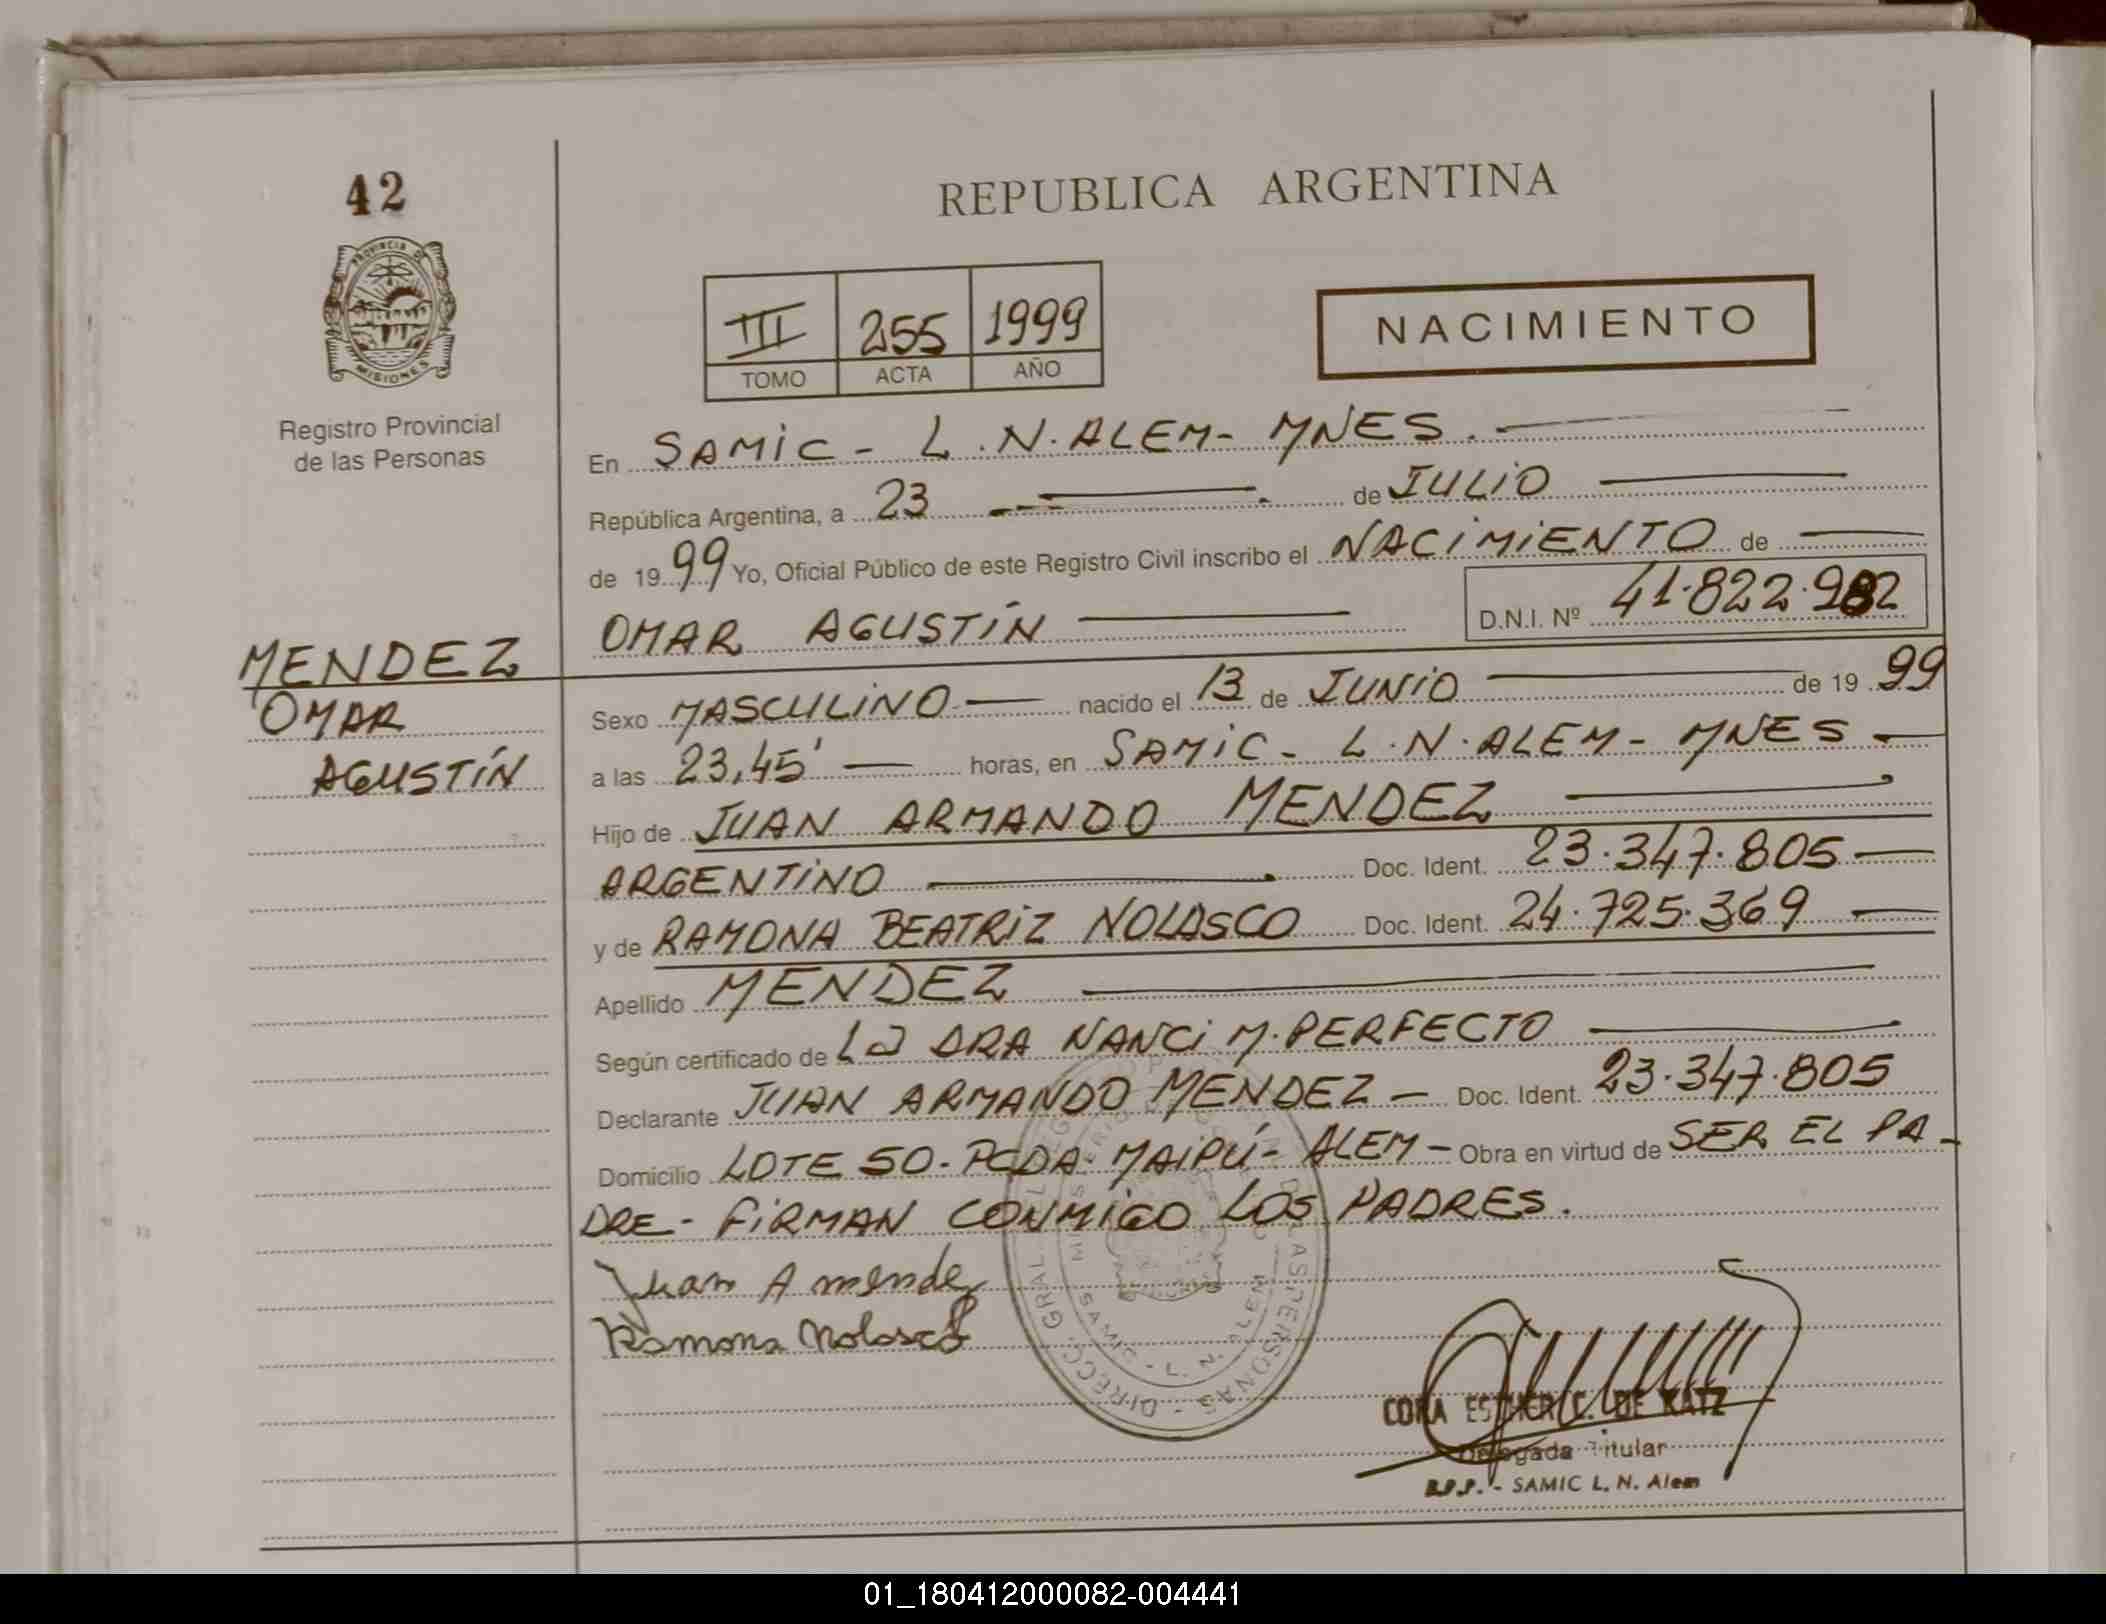 42
REPUBLICA ARGENTINA
PROVINCIA DE
MISIONES
Registro Provincial
de las Personas
III 255 1999
TOMO ACTA AÑO
NACIMIENTO
En SAMIC - L.N. ALEM - MNES.
República Argentina, a 23 de JULIO
de 1999 Yo, Oficial Público de este Registro Civil inscribo el NACIMIENTO de
OMAR AGUSTÍN D.N.I. Nº 41.822.982
MENDEZ
OMAR
AGUSTÍN
Sexo MASCULINO nacido el 13 de JUNIO de 1999
a las 23,45' horas, en SAMIC - L.N. ALEM - MNES
Hijo de JUAN ARMANDO MENDEZ
ARGENTINO Doc. Ident. 23.347.805
y de RAMONA BEATRIZ NOLASCO Doc. Ident. 24.725.369
Apellido MENDEZ
Según certificado de LA DRA NANCI M. PERFECTO
Declarante JUAN ARMANDO MENDEZ - Doc. Ident. 23.347.805
Domicilio LOTE 50 - PCDA MAIPÚ - ALEM - Obra en virtud de SER EL PA-
DRE - FIRMAN CONMIGO LOS PADRES.
Juan A mendez
Ramona Nolasco
CORA ESTHER C. DE KATZ
Delegada Titular
R.P.P. - SAMIC L. N. Alem
01_180412000082-004441